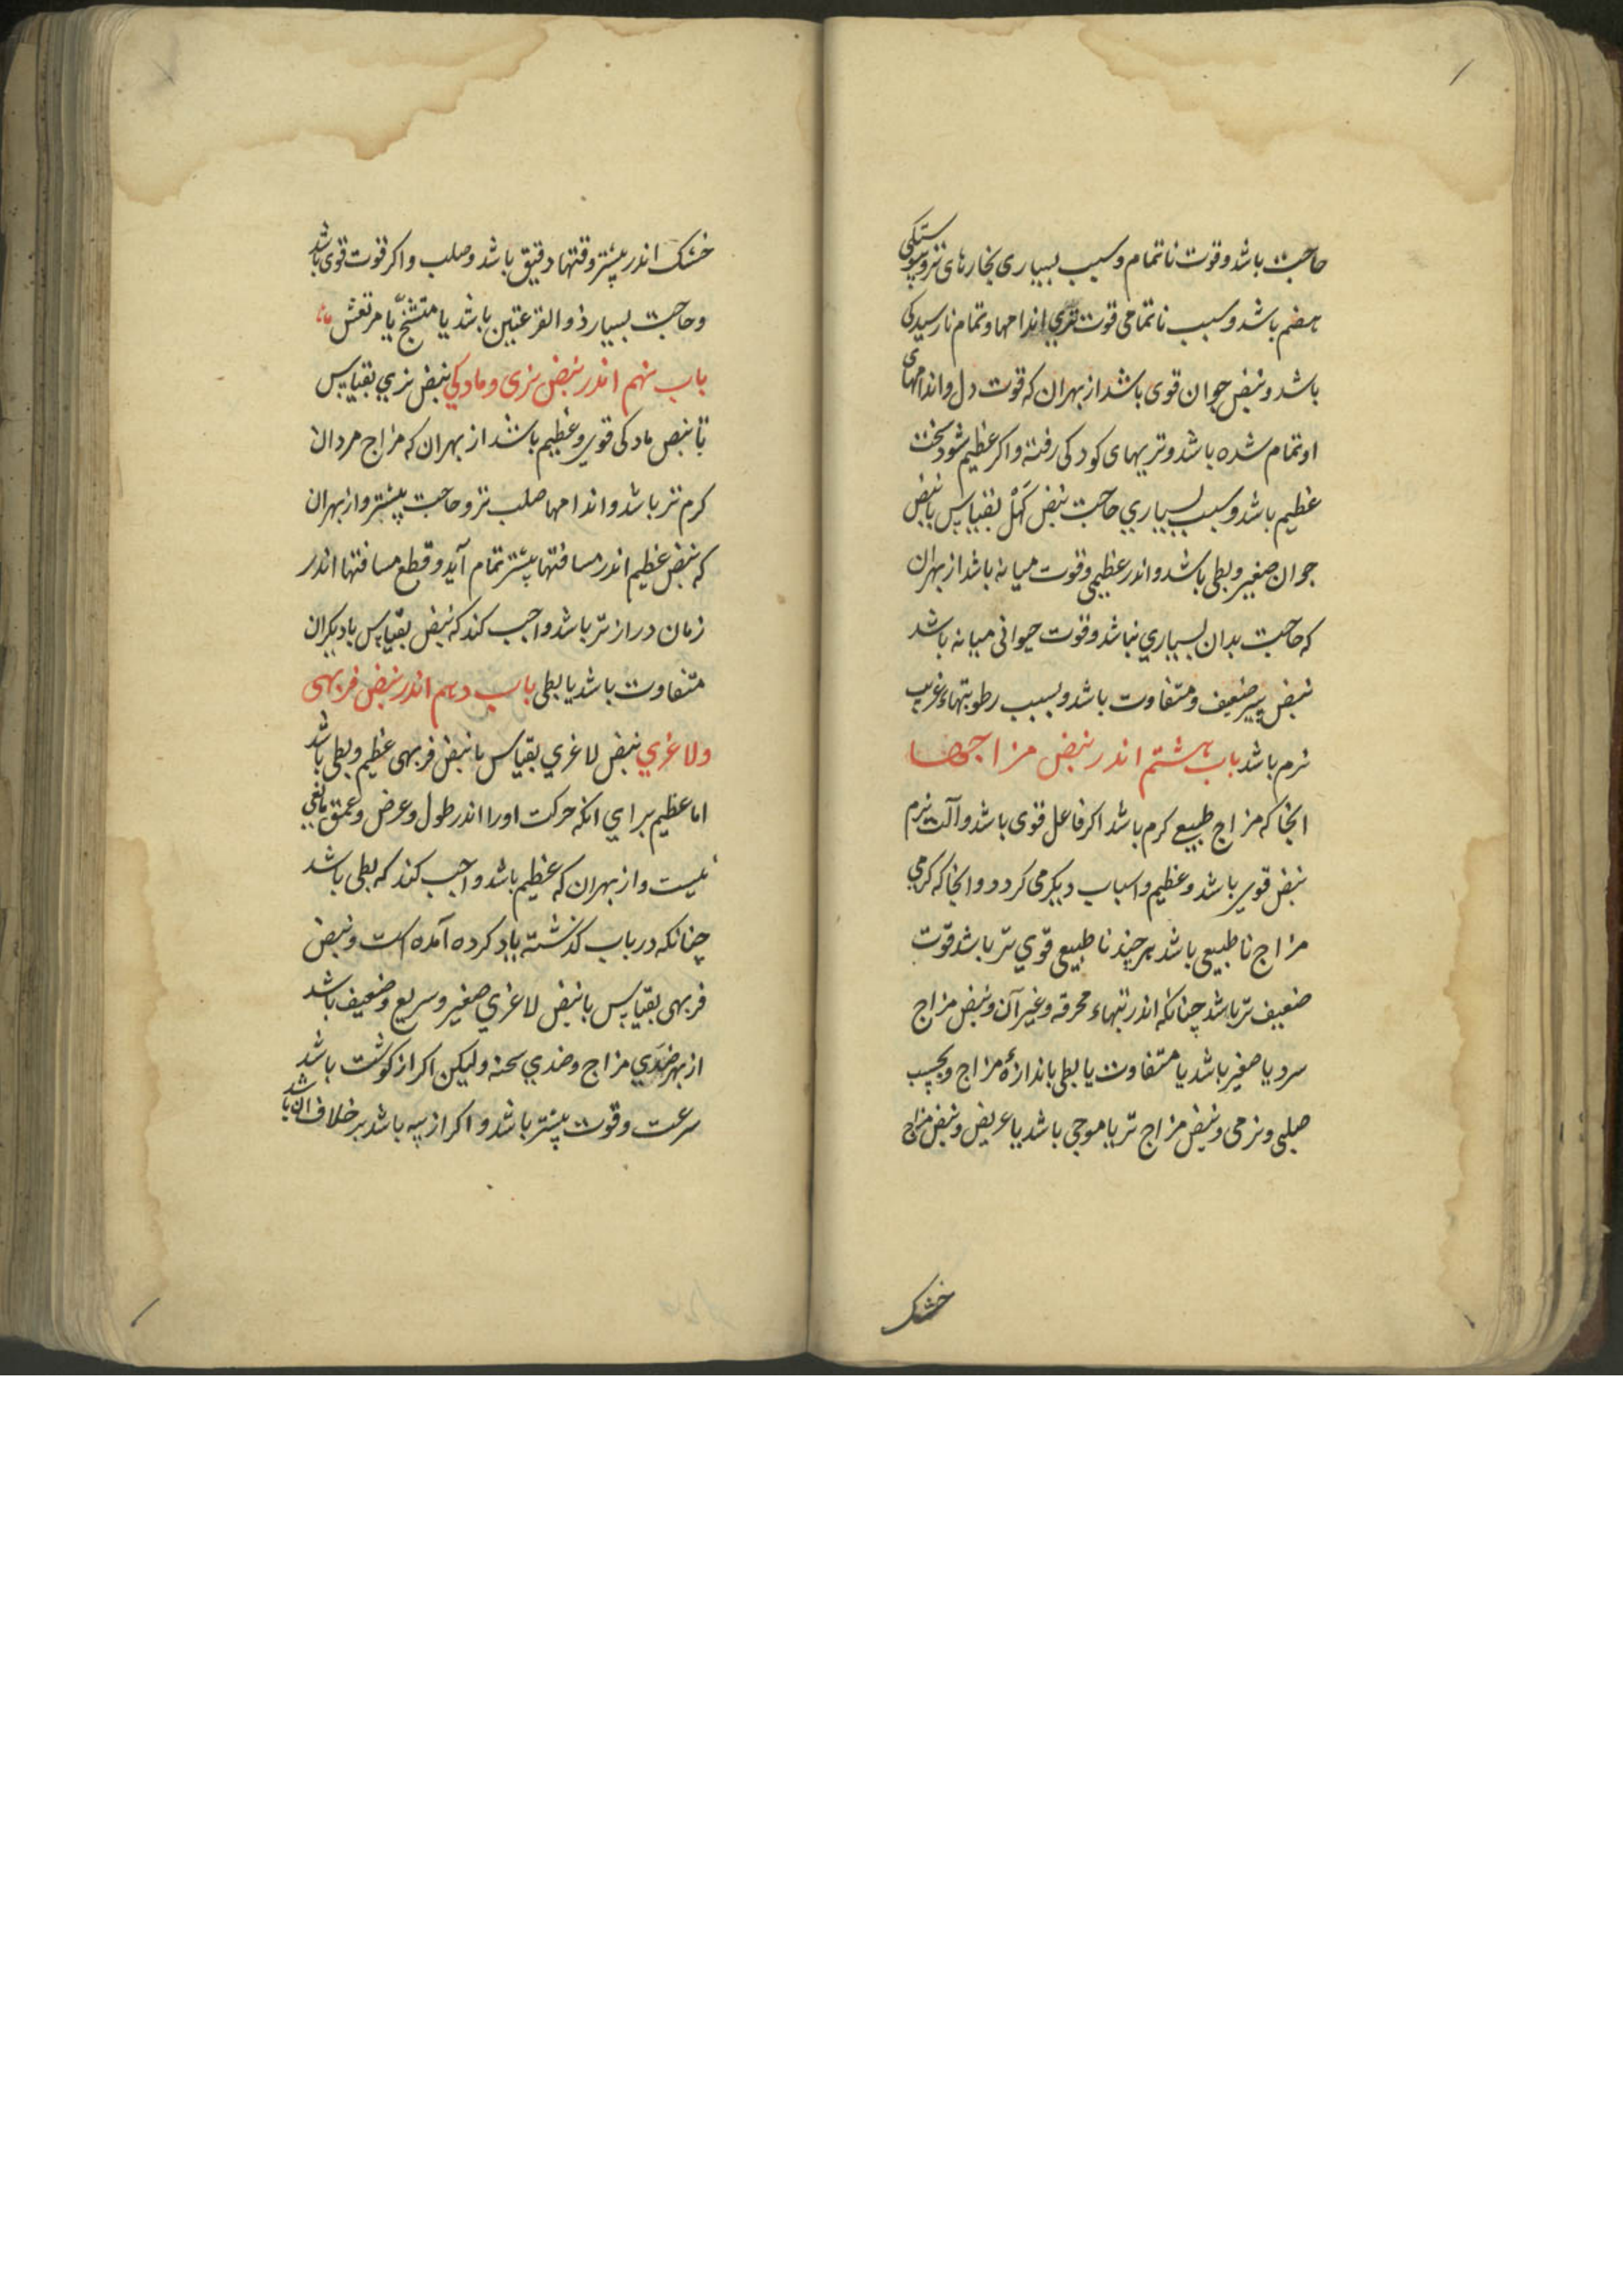 حاجت باشد و قوت ناتمام و سبب بسیاری بخارهای تر و پیوستکی
هضم باشد و سبب ناتمامی قوت تری اندامها و تمام نارسیدکی
باشد و نبض جوان قوی باشد از بهران که قوت دل و اندامهای
او تمام شده باشد و تریهای کودکی رفته و اکر عظیم شود سخت
عظیم باشد و سبب بسیاری حاجت نبض کهل بقیاس با نبض
جوان صغیر و بطی باشد و اندر عظیمی و قوت میانه باشد از بهران
که حاجت بدان بسیاری نباشد و قوت حیوانی میانه باشد
نبض پیر ضعیف و متفاوت باشد و بسبب رطوبتهاء غریب
نرم باشد باب هشتم اندر نبض مزاجها
انجا که مزاج طبیعی کرم باشد اکر فاعل قوی باشد و آلت نرم
نبض قوی باشد و عظیم و اسباب دیکر می کردد و انجا که کرمی
مزاج ناطبیعی باشد هر چند ناطبیعی قوی تر باشد قوت
ضعیف تر باشد چنانکه اندر تبهاء محرقه و غیر آن و نبض مزاج
سرد یا صغیر باشد یا متفاوت یا بطی باندازهٔ مزاج و بحسب
صلبی و نرمی و نبض مزاج تر یا موجی باشد یا عریض و نبض مزاج
خشک
خشک اندر بیشتر وقتها دقیق باشد و صلب و اکر قوت قوی باشد
و حاجت بسیار ذوالقرعتین باشد یا متشنج یا مرتعش
باب نهم اندر نبض نری و مادکی نبض نری بقیاس
با نبض مادکی قوی و عظیم باشد از بهران که مزاج مردان
کرم تر باشد و اندامها صلب تر و حاجت بیشتر و از بهران
که نبض عظیم اندر مسافتها بیشتر تمام آید و قطع مسافتها اندر
زمان دراز تر باشد واجب کند که نبض بقیاس با دیکران
متفاوت باشد یا بطی باب دهم اندر نبض فربهی
و لاغری نبض لاغری بقیاس با نبض فربهی عظیم و بطی باشد
اما عظیم برای انکه حرکت او را اندر طول و عرض و عمق مانعی
نیست و از بهران که عظیم باشد واجب کند که بطی باشد
چنانکه در باب کذشته یاد کرده آمده است و نبض
فربهی بقیاس با نبض لاغری صغیر و سریع و ضعیف باشد
از بهر ضدی مزاج و ضدی سحنه ولیکن اکر از کوشت باشد
سرعت و قوت بیشتر باشد و اکر از پیه باشد بر خلاف ان باشد